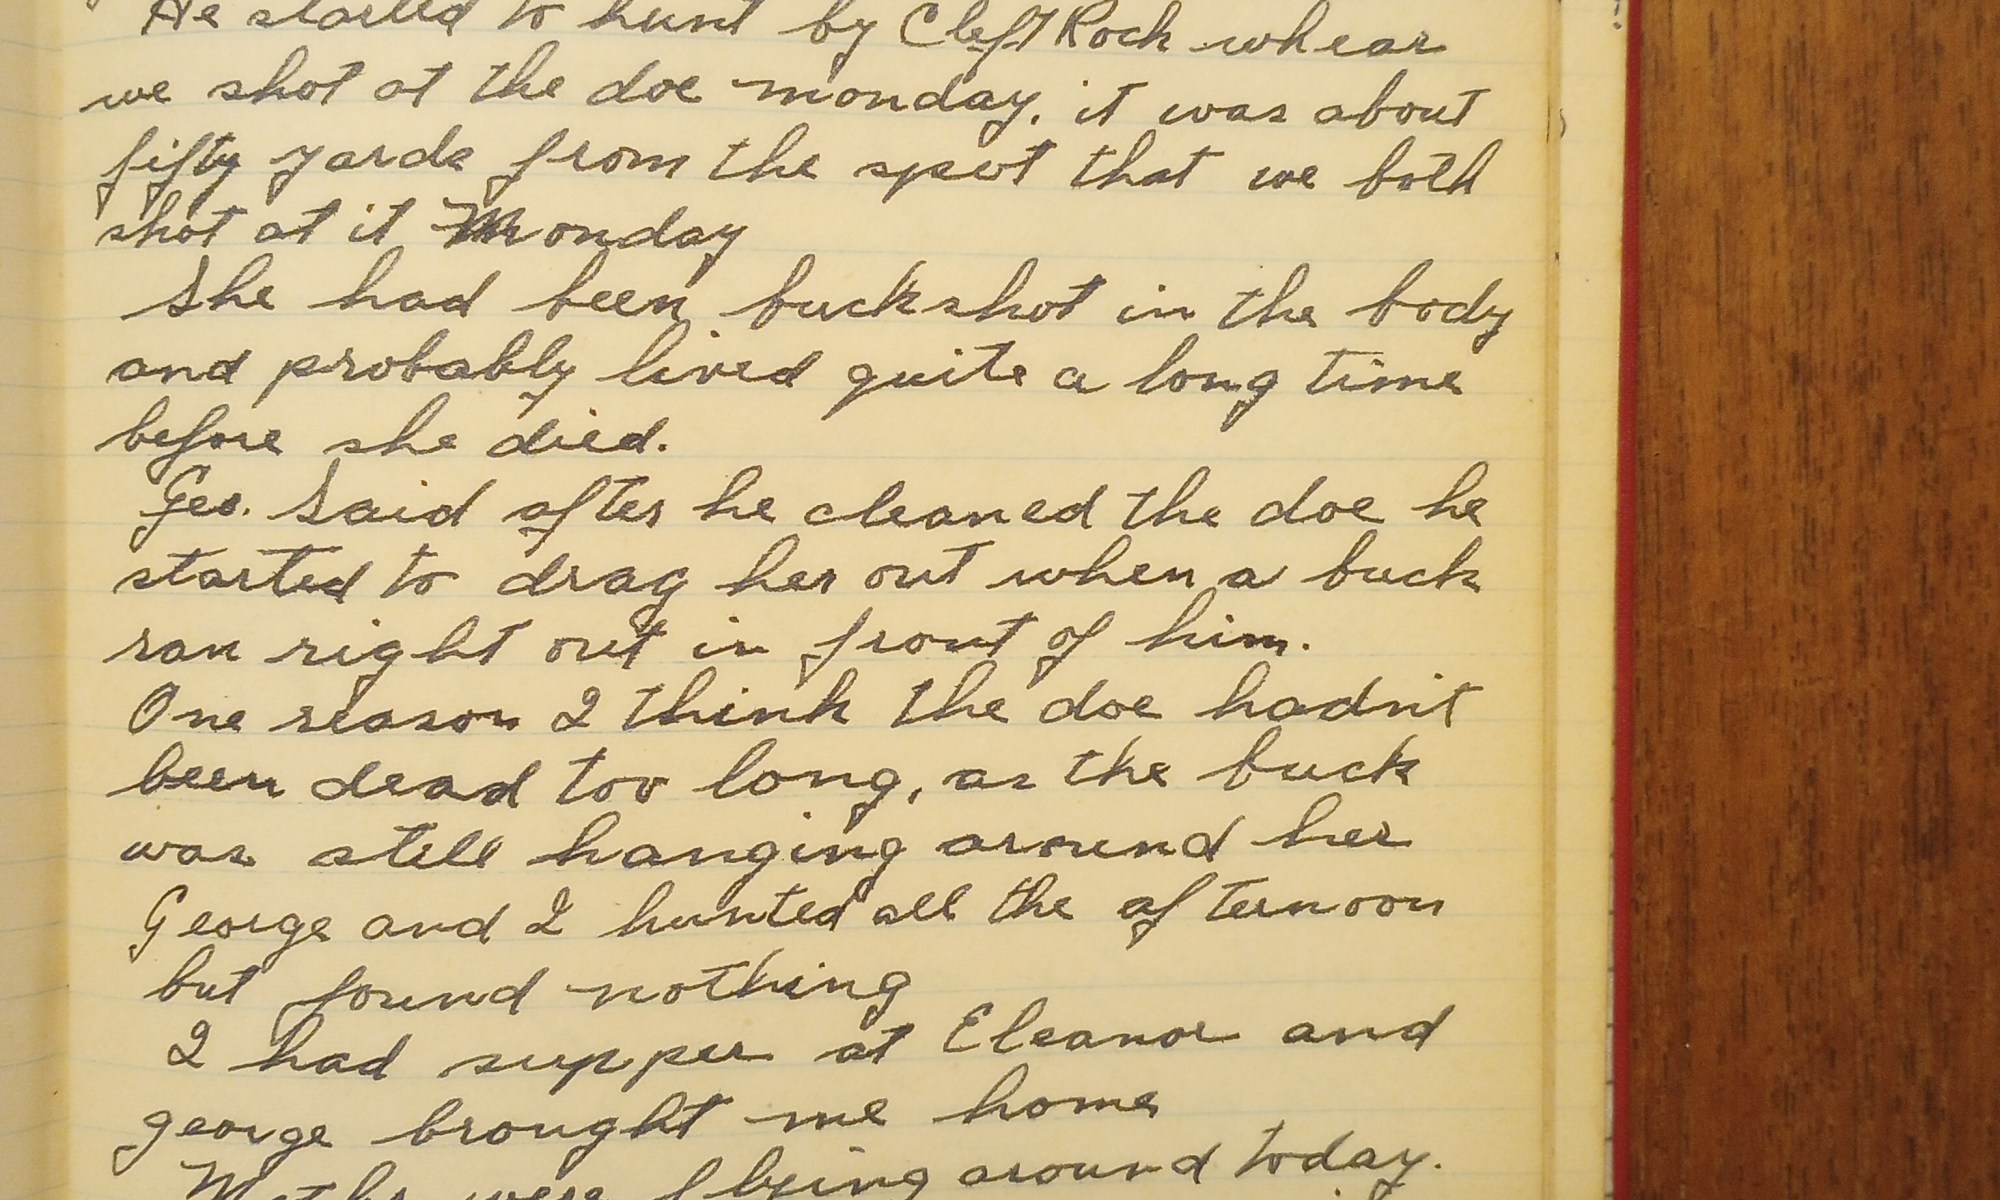 He started to hunt by Cleft Rock whear
we shot at the doe monday, it was about
fifty yards from the spot that we both
shot at it Monday
She had been buckshot in the body
and probably lived quite a long time
before she died.
Geo. Said after he cleaned the doe he
started to drag her out when a buck
ran right out in front of him.
One reason I think the doe hadn't
been dead too long, as the buck
was still hanging around her
George and I hunted all the afternoon
but found nothing
I had supper at Eleanor and
george brought me home
Moths were flying around today.